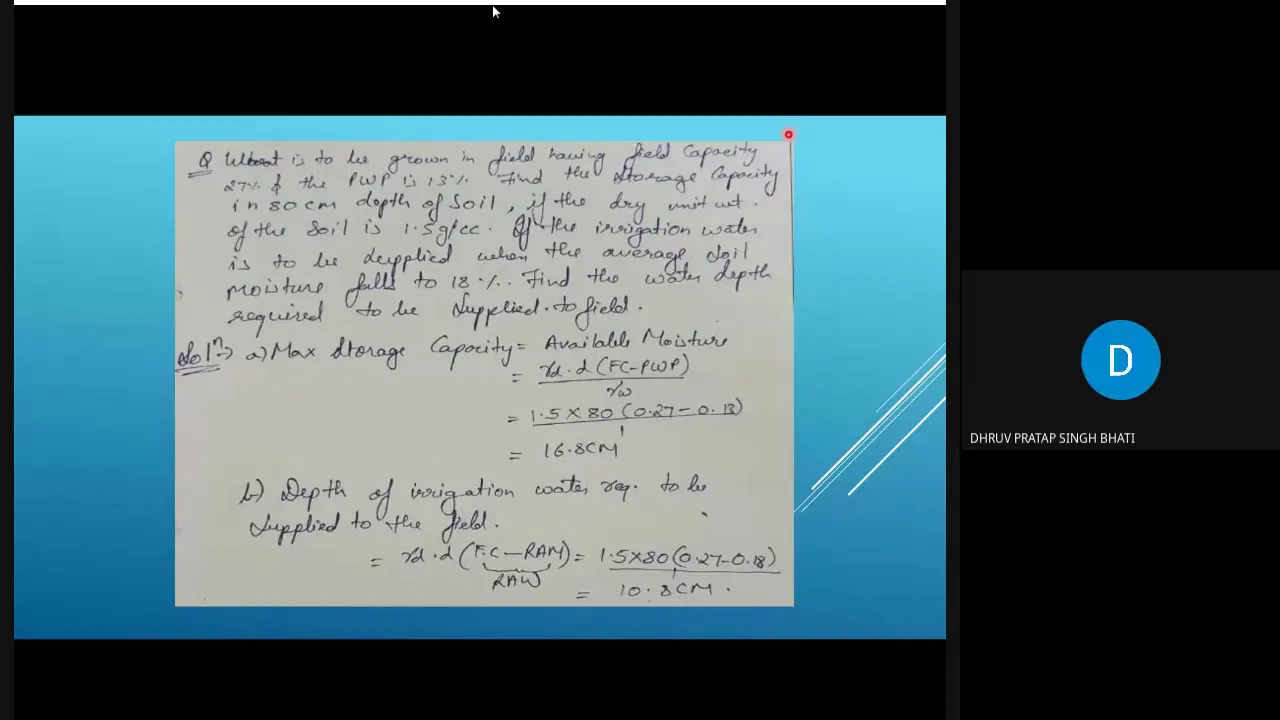 Q Wheat is to be grown in field having field Capacity
27% & the PWP is 13%. Find the Storage Capacity
in 80 cm depth of Soil, if the dry unit wt.
of the Soil is 1.5g/cc. If the irrigation water
is to be supplied when the average Soil
moisture falls to 18%. Find the water depth
required to be Supplied to field.
Solⁿ→ a) Max Storage Capacity = Available Moisture
= γd.d (FC-PWP)
γw
= 1.5 X 80 (0.27 - 0.13)
1
= 16.8CM
b) Depth of irrigation water req. to be
Supplied to the field.
= γd.d (F.C - RAM) = 1.5X80(0.27-0.18)
RAW
1
= 10.8CM.
D
DHRUV PRATAP SINGH BHATI